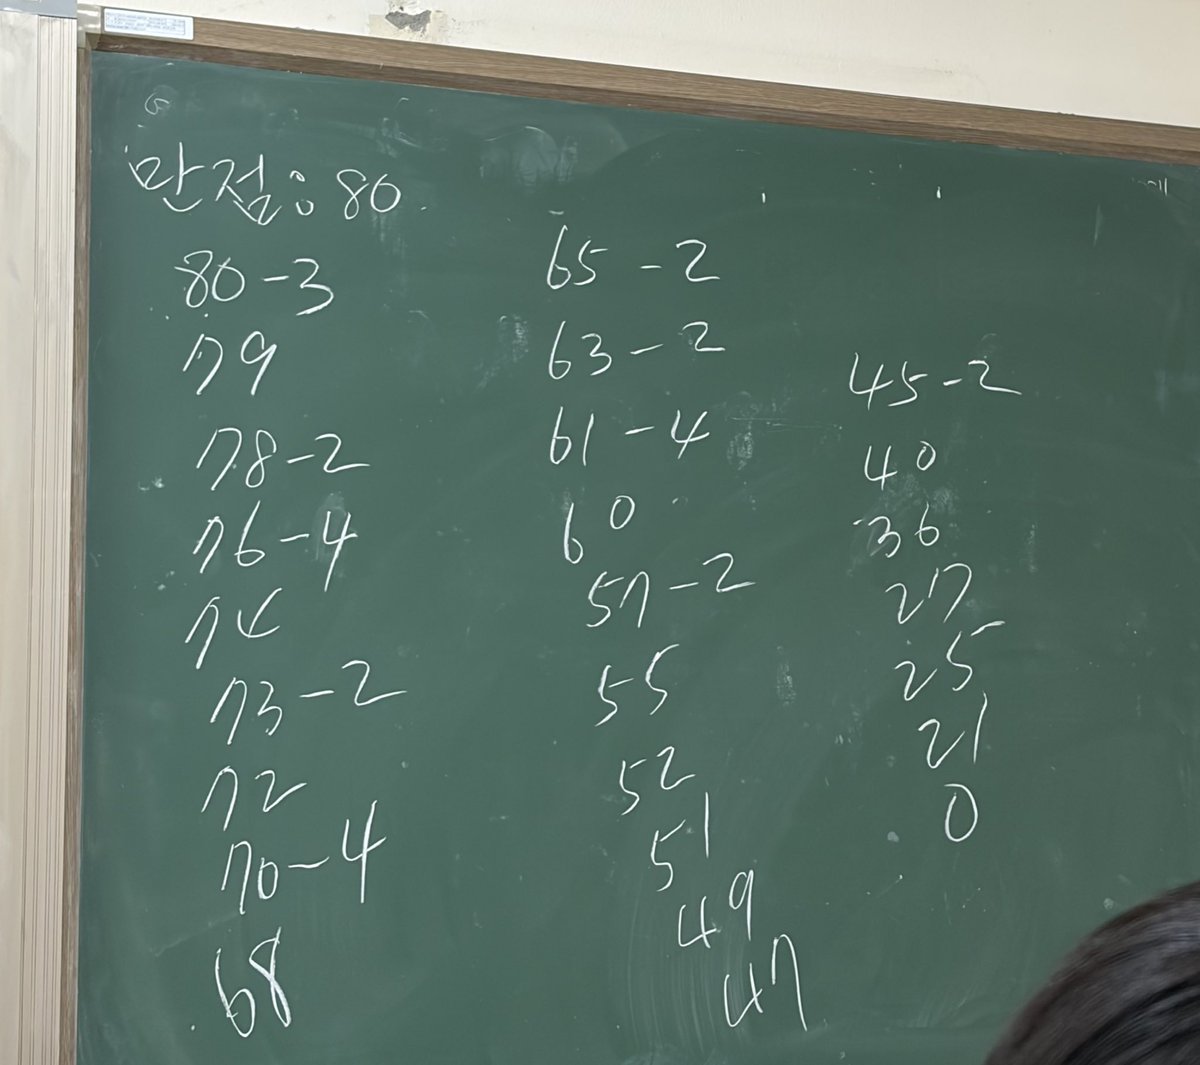 만점: 80
80-3
79
78-2
76-4
74
73-2
72
70-4
68
65-2
63-2
61-4
60
57-2
55
52
51
49
47
45-2
40
36
27
25
21
0